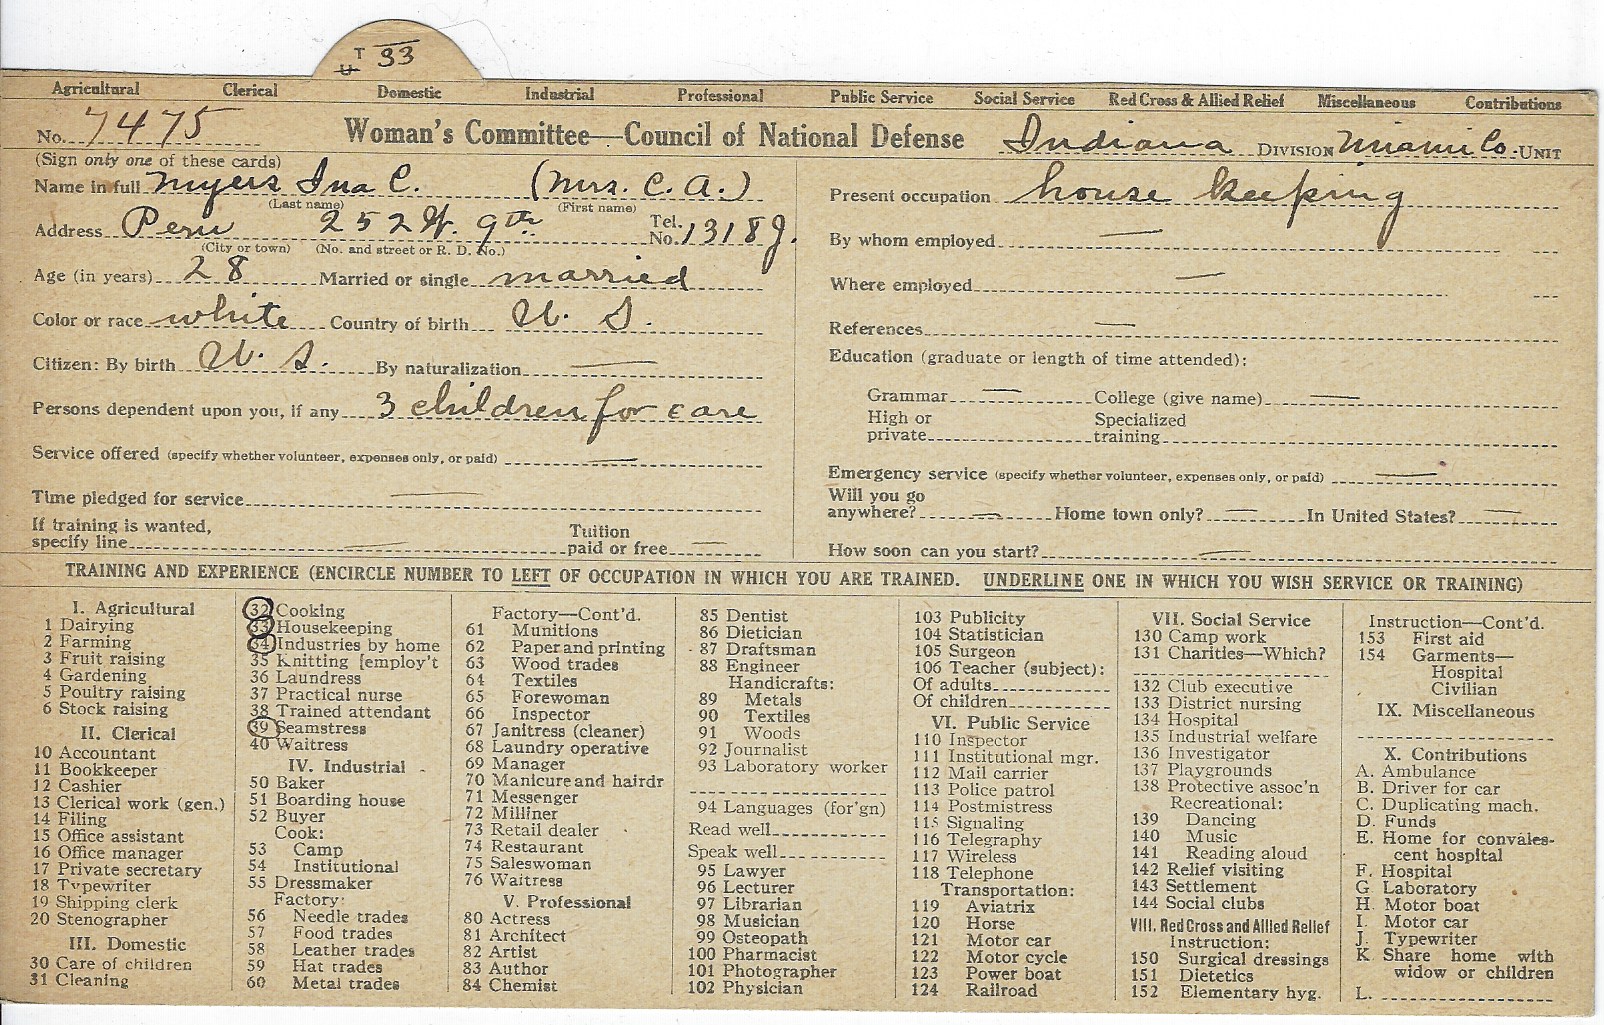 T U 33
Agricultural Clerical Domestic Industrial Professional Public Service Social Service Red Cross & Allied Relief Miscellaneous Contributions
No. 7475 Woman's Committee—Council of National Defense Indiana DIVISION Miami Co. UNIT
(Sign only one of these cards)
Name in full Myers Ina C. (Mrs. C. A.)
(Last name) (First name)
Address Peru 252 W. 9th Tel. No. 1318 J.
(City or town) (No. and street or R. D. No.)
Age (in years) 28 Married or single married
Color or race white Country of birth U. S.
Citizen: By birth U. S. By naturalization —
Persons dependent upon you, if any 3 children for care
Service offered (specify whether volunteer, expenses only, or paid) —
Time pledged for service —
If training is wanted,
specify line — Tuition paid or free —
Present occupation house keeping
By whom employed —
Where employed —
References —
Education (graduate or length of time attended):
Grammar — College (give name) —
High or private Specialized training
Emergency service (specify whether volunteer, expenses only, or paid) —
Will you go
anywhere? — Home town only? — In United States? —
How soon can you start? —
TRAINING AND EXPERIENCE (ENCIRCLE NUMBER TO LEFT OF OCCUPATION IN WHICH YOU ARE TRAINED. UNDERLINE ONE IN WHICH YOU WISH SERVICE OR TRAINING)
I. Agricultural
1 Dairying
2 Farming
3 Fruit raising
4 Gardening
5 Poultry raising
6 Stock raising
II. Clerical
10 Accountant
11 Bookkeeper
12 Cashier
13 Clerical work (gen.)
14 Filing
15 Office assistant
16 Office manager
17 Private secretary
18 Typewriter
19 Shipping clerk
20 Stenographer
III. Domestic
30 Care of children
31 Cleaning
32 Cooking
33 Housekeeping
34 Industries by home
35 Knitting [employ't
36 Laundress
37 Practical nurse
38 Trained attendant
39 Seamstress
40 Waitress
IV. Industrial
50 Baker
51 Boarding house
52 Buyer
Cook:
53 Camp
54 Institutional
55 Dressmaker
Factory:
56 Needle trades
57 Food trades
58 Leather trades
59 Hat trades
60 Metal trades
Factory—Cont'd.
61 Munitions
62 Paper and printing
63 Wood trades
64 Textiles
65 Forewoman
66 Inspector
67 Janitress (cleaner)
68 Laundry operative
69 Manager
70 Manicure and hairdr
71 Messenger
72 Milliner
73 Retail dealer
74 Restaurant
75 Saleswoman
76 Waitress
V. Professional
80 Actress
81 Architect
82 Artist
83 Author
84 Chemist
85 Dentist
86 Dietician
87 Draftsman
88 Engineer
Handicrafts:
89 Metals
90 Textiles
91 Woods
92 Journalist
93 Laboratory worker
94 Languages (for'gn)
Read well
Speak well
95 Lawyer
96 Lecturer
97 Librarian
98 Musician
99 Osteopath
100 Pharmacist
101 Photographer
102 Physician
103 Publicity
104 Statistician
105 Surgeon
106 Teacher (subject):
Of adults
Of children
VI. Public Service
110 Inspector
111 Institutional mgr.
112 Mail carrier
113 Police patrol
114 Postmistress
115 Signaling
116 Telegraphy
117 Wireless
118 Telephone
Transportation:
119 Aviatrix
120 Horse
121 Motor car
122 Motor cycle
123 Power boat
124 Railroad
VII. Social Service
130 Camp work
131 Charities—Which?
132 Club executive
133 District nursing
134 Hospital
135 Industrial welfare
136 Investigator
137 Playgrounds
138 Protective assoc'n
Recreational:
139 Dancing
140 Music
141 Reading aloud
142 Relief visiting
143 Settlement
144 Social clubs
VIII. Red Cross and Allied Relief
Instruction:
150 Surgical dressings
151 Dietetics
152 Elementary hyg.
Instruction—Cont'd.
153 First aid
154 Garments—
Hospital
Civilian
IX. Miscellaneous
X. Contributions
A. Ambulance
B. Driver for car
C. Duplicating mach.
D. Funds
E. Home for convales-
cent hospital
F. Hospital
G. Laboratory
H. Motor boat
I. Motor car
J. Typewriter
K. Share home with
widow or children
L.